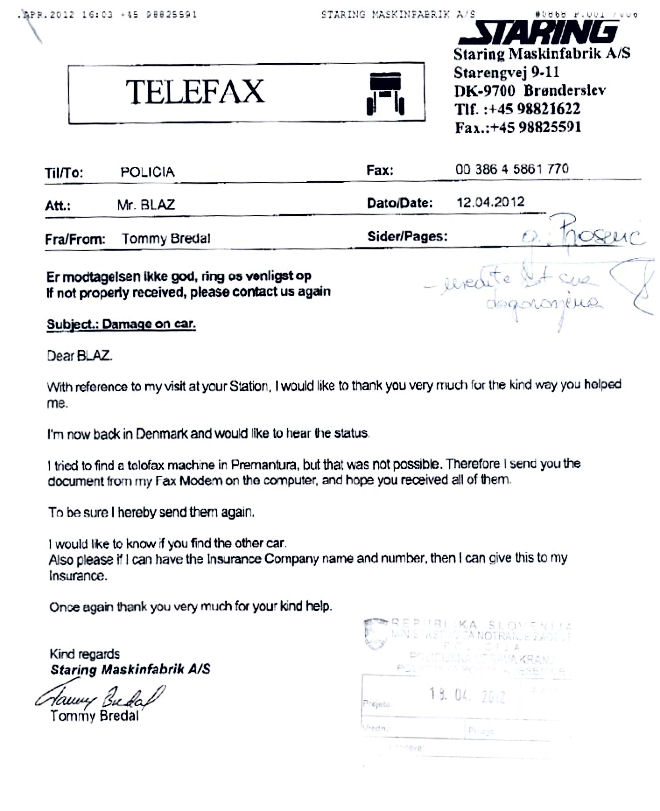 .APR.2012 16:03 +45 98825591 STARING MASKINFABRIK A/S
STARING
Staring Maskinfabrik A/S
Starengvej 9-11
DK-9700 Brønderslev
Tlf. :+45 98821622
Fax.:+45 98825591
TELEFAX
Til/To: POLICIA Fax: 00 386 4 5861 770
Att.: Mr. BLAZ Dato/Date: 12.04.2012
Fra/From: Tommy Bredal Sider/Pages:
Er modtagelsen ikke god, ring os venligst op
If not properly received, please contact us again
Subject.: Damage on car.
Dear BLAZ.
With reference to my visit at your Station, I would like to thank you very much for the kind way you helped
me.
I'm now back in Denmark and would like to hear the status.
I tried to find a telofax machine in Premantura, but that was not possible. Therefore I send you the
document from my Fax Modem on the computer, and hope you received all of them.
To be sure I hereby send them again.
I would like to know if you find the other car.
Also please if I can have the Insurance Company name and number, then I can give this to my
Insurance.
Once again thank you very much for your kind help.
Kind regards
Staring Maskinfabrik A/S
Tommy Bredal
Tommy Bredal
REPUBLIKA SLOVENIJA
POLICIJA
04. 2012